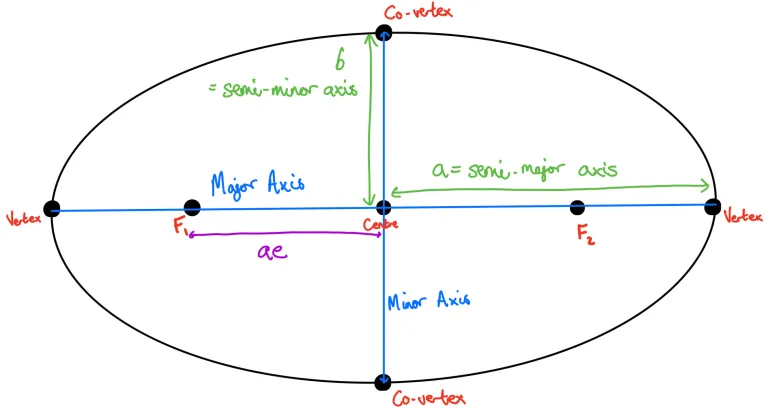 Co-vertex
b
= semi-minor axis
a = semi-major axis
Major Axis
Vertex
F₁
Centre
F₂
Vertex
ae
Minor Axis
Co-vertex